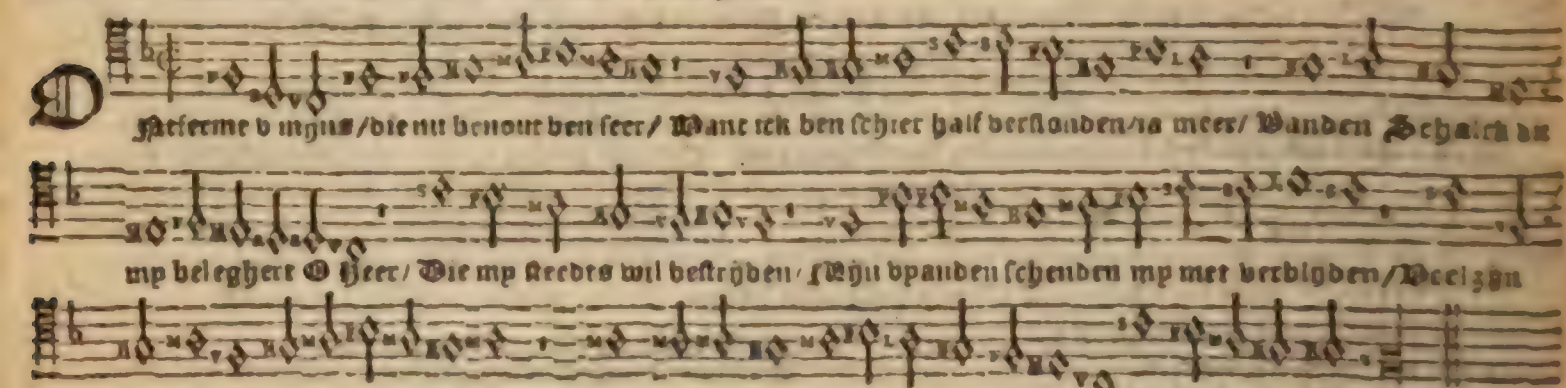 Ontferme v mijns / die nu benout ben seer / Want ick ben schier half verslonden / ia meer / Vanden Schalck die
my beleghert O Heer / Die my steedts wil bestrijden / Mijn vyanden schenden my met verblijden / Veel zijn